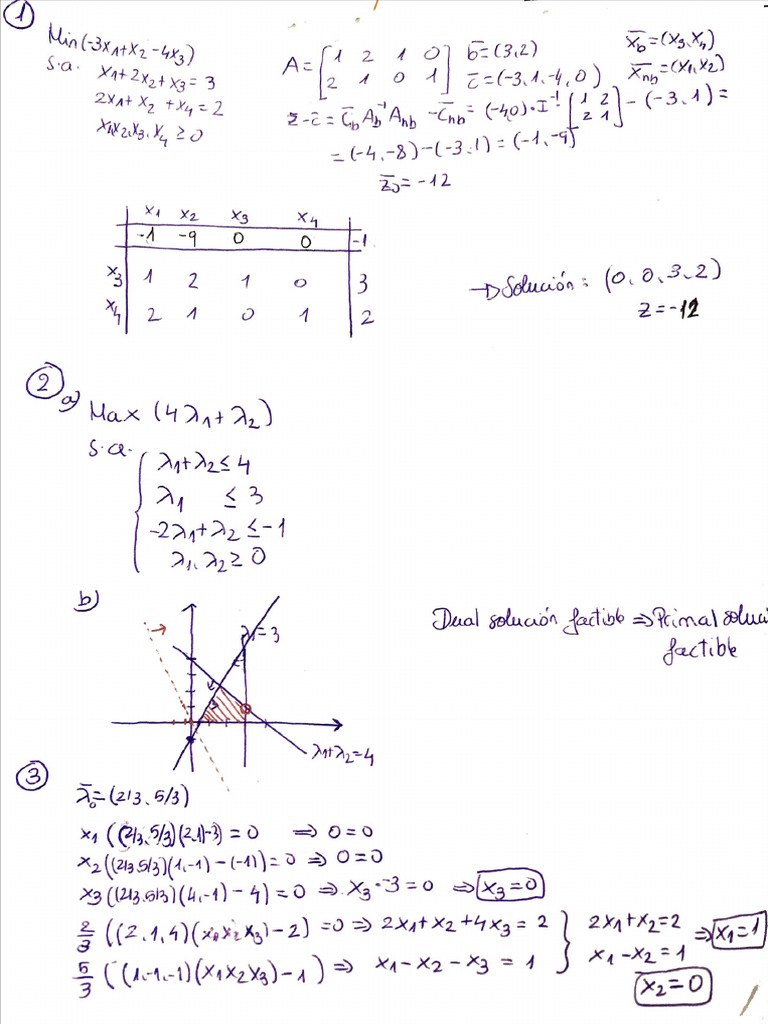 ①
Min(-3x1+x2-4x3)
s.a. x1+2x2+x3=3
2x1+x2 +x4=2
x1x2,x3,x4 ≥0
A=[1 2 1 0
2 1 0 1] b̄=(3,2)
c̄=(-3,1,-4,0)
x̄b=(x3,x4)
x̄nb=(x1,x2)
z̄-c̄= c̄b Ab⁻¹ Anb - c̄nb = (-4,0)·I⁻¹·(1 2
2 1) - (-3,1)=
=(-4,-8)-(-3,1)=(-1,-9)
z̄0=-12
x1 x2 x3 x4
-1 -9 0 0 -1
x3 1 2 1 0 3
x4 2 1 0 1 2
→ Solución: (0,0,3,2)
z=-12
②
a) Max (4λ1+λ2)
s.a.
λ1+λ2≤4
λ1 ≤ 3
-2λ1+λ2≤-1
λ1,λ2≥0
b)
λ1=3
λ1+λ2=4
Dual solución factible ⇒ Primal soluci
factible
③
λ̄0=(2/3,5/3)
x1((2/3,5/3)(2,1)-3)=0 ⇒ 0=0
x2((2/3,5/3)(1,-1)-(-1))=0 ⇒ 0=0
x3((2/3,5/3)(4,-1)-4)=0 ⇒ x3·-3=0 ⇒ x3=0
2/3((2,1,4)(x1x2x3)-2)=0 ⇒ 2x1+x2+4x3=2
5/3((1,-1,-1)(x1x2x3)-1) ⇒ x1-x2-x3=1
2x1+x2=2
x1-x2=1
⇒ x1=1
x2=0